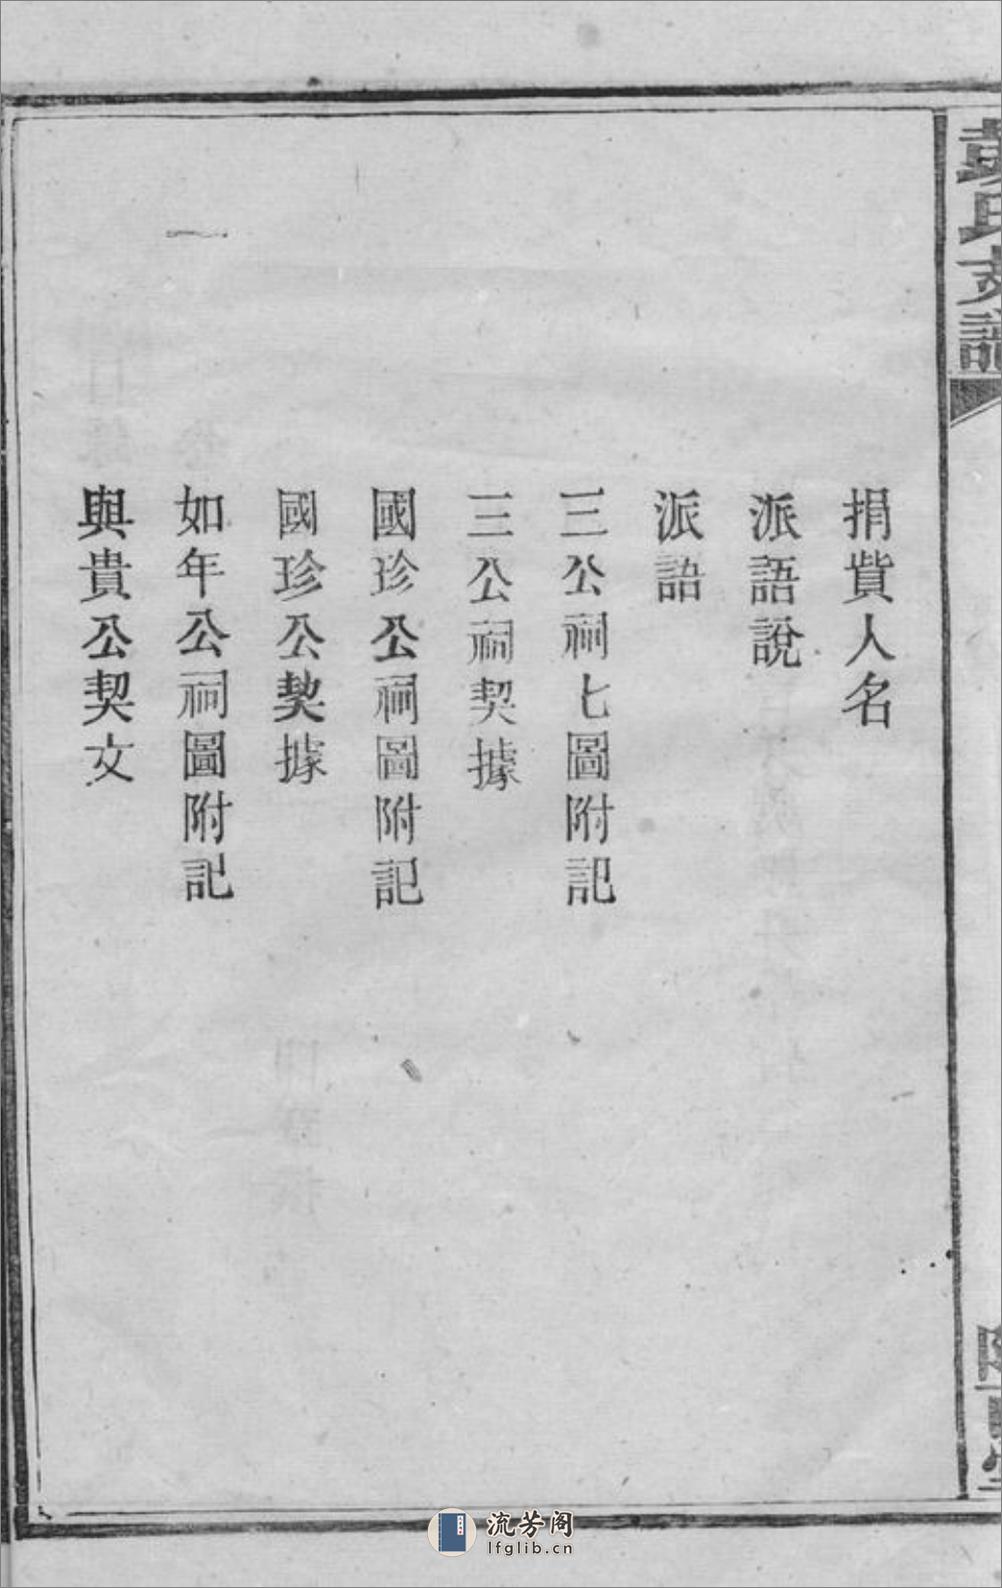 捐貲人名
派語說
派語
三公祠七圖附記
三公祠契據
國珍公祠圖附記
國珍公契據
如年公祠圖附記
與貴公契文
流芳阁
lfglib.cn